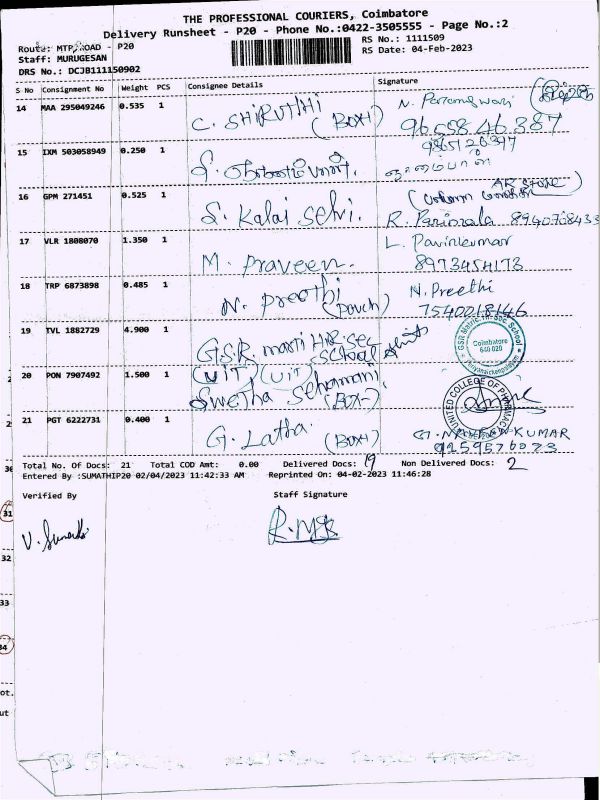 THE PROFESSIONAL COURIERS, Coimbatore
Delivery Runsheet - P20 - Phone No.:0422-3505555 - Page No.:2
Route: MTP,ROAD - P20
RS No.: 1111509
Staff: MURUGESAN
RS Date: 04-Feb-2023
DRS No.: DCJB111150902
S No Consignment No Weight PCS Consignee Details Signature
14 MAA 295049246 0.535 1 C. SHRUTHI (BOX1)
9655846387
15 IXM 503058949 0.250 1
9865120397
16 GPM 271451 0.525 1 S. Kalai Selvi. R. Parimala 8940708433
AR Store
17 VLR 1808070 1.350 1 M. Praveen. L. Pavinkumar
8973454173
18 TRP 6873898 0.485 1 N. Preethi (Pouch) N. Preethi
7540018146
19 TVL 1882729 4.900 1 G.S.R. HR.SEC School
GSR Matric. Hr. Sec. School
Coimbatore
641 020
20 PON 7907492 1.500 1 (UIT) (UIT)
Swetha
UNITED COLLEGE OF PHARMACY
21 PGT 6222731 0.400 1 G. Latha. (BOX1) KUMAR
9159576073
Total No. Of Docs: 21 Total COD Amt: 0.00 Delivered Docs: 19 Non Delivered Docs: 2
Entered By :SUMATHIP20 02/04/2023 11:42:33 AM Reprinted On: 04-02-2023 11:46:28
Verified By Staff Signature
31
32
33
34
ot.
ut